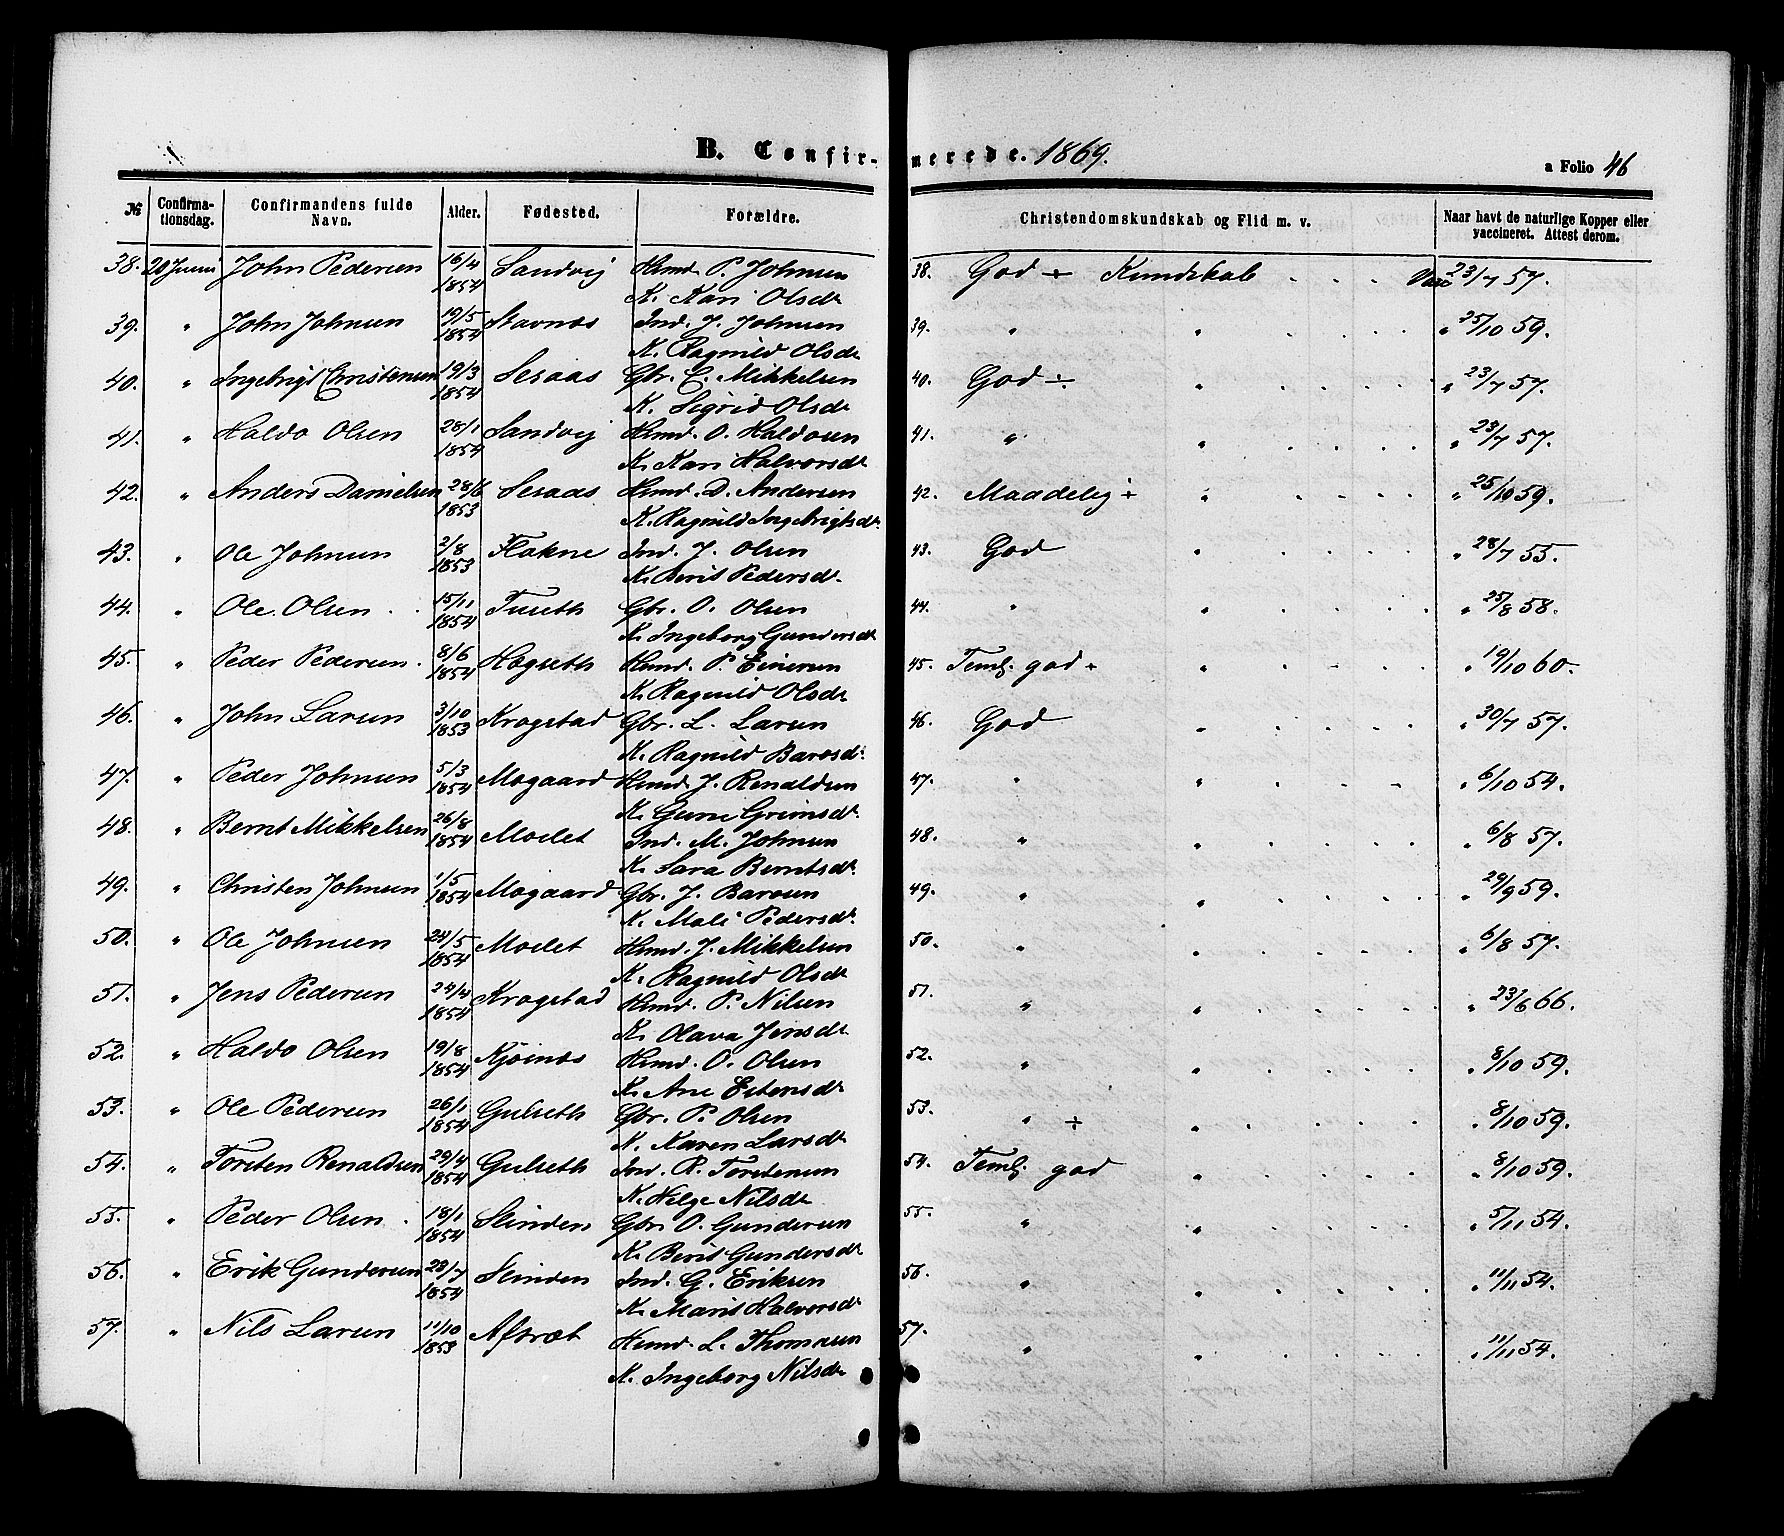 B. Confirmerede. 1869.
a Folio 46
№ Confirmationsdag. Confirmandens fulde Navn. Alder. Fødested. Forældre. Christendomskundskab og Flid m. v. Naar havt de naturlige Kopper eller vaccineret. Attest derom.
38. 20 Juni John Pedersen 16/4 1854 Sandvig Hmd. P. Johnsen 38. God ÷ Kundskab . . . Vac 23/7 57.
K. Kari Olsdt
39. " John Johnsen 19/5 1854 Stavnæs Ind. J. Johnsen 39. " " . . . " 25/10 59.
K. Ragnild Olsdt
40. " Ingebrigt Christensen 19/3 1854 Sesaas Gbr. C. Mikkelsen 40. God ÷ " . . . " 23/7 57.
K. Sigrid Olsdt
41. " Haldo Olsen 28/1 1854 Sandvig Hmd. O. Haldosen 41. " " . . . " 23/7 57.
K. Kari Halvorsdt
42. " Anders Danielsen 28/6 1853 Sesaas Hmd. D. Andersen 42. Maadelig ÷ " . . . " 25/10 59.
K. Ragnild Ingebrigtsdt.
43. " Ole Johnsen 2/8 1853 Flakne Ind. J. Olsen 43. God " . . . " 28/7 55.
K. Berit Pedersdt.
44. " Ole Olsen . 15/11 1854 Tuseth Gbr. O. Olsen 44. " " . . . " 25/8 58.
K. Ingeborg Gundersdt
45. " Peder Pedersen . 8/6 1854 Hogseth Hmd. P. Einersen 45. Teml. god ÷ " . . . " 19/10 60.
K. Ragnild Olsdt
46. " John Larsen 3/10 1853 Krogstad Gbr. L. Larsen 46. God " . . . " 30/7 57.
K. Ragnild Barosdt.
47. " Peder Johnsen 5/3 1854 Mogaard Hmd. J. Renaldsen 47. " " . . . " 6/10 54.
K. Guru Grimsdt.
48. " Bernt Mikkelsen 26/8 1854 Moslet Ind. M. Johnsen 48. " " . . . " 6/8 57.
K. Sara Berntsdt.
49. " Christen Johnsen 1/5 1854 Mogaard Gbr. J. Barosen 49. " " . . . " 29/9 59.
K. Mali Pedersdt.
50. " Ole Johnsen 24/5 1854 Moslet Hmd. J. Mikkelsen 50. " " . . . " 6/8 57.
K. Ragnild Olsdt
51. " Jens Pedersen 24/4 1854 Krogstad Hmd. P. Nilsen 51. " " . . . " 23/6 66.
K. Olava Jensdt
52. " Haldo Olsen 19/8 1854 Kjøinæs Hmd. O. Olsen 52. " " . . . " 8/10 59.
K. Ane Estensdt
53. " Ole Pedersen 26/1 1854 Gulseth Gbr. P. Olsen 53. " ÷ " . . . " 8/10 59.
K. Karen Larsdt
54. " Torsten Renaldsen 29/4 1854 Gulseth Ind. R. Torstensen 54. Teml. god " . . . " 8/10 59.
K. Helge Nilsdt
55. " Peder Olsen . 18/1 1854 Slinden Gbr. O. Gundersen 55. " " . . . " 5/11 54.
K. Berit Gundersdt
56. " Erik Gundersen 23/7 1854 Slinden Ind. G. Eriksen 56. " " . . . " 11/11 54.
K. Marit Halvorsdt
57. " Nils Larsen 11/10 1853 Afsræt Hmd. L. Thomasen 57. " " . . . " 11/11 54.
K. Ingeborg Nilsdt